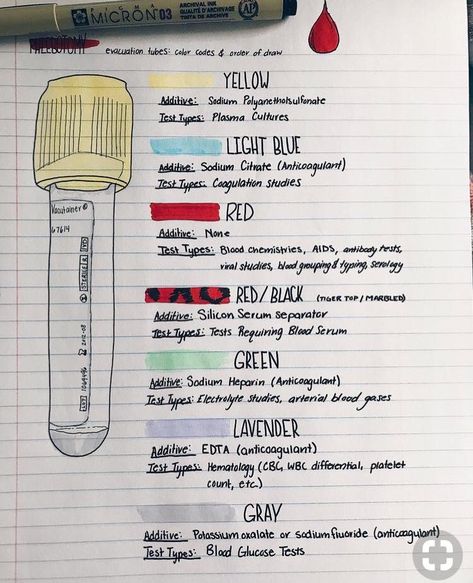 PIGMA
MICRON® 03
ARCHIVAL INK
QUALITÉ D'ARCHIVAGE
TINTA DE ARCHIVO
AP
PHLEBOTOMY evacuation tubes: color codes & order of draw
YELLOW
Additive: Sodium Polyanetholsulfonate
Test Types: Plasma Cultures
LIGHT BLUE
Additive: Sodium Citrate (Anticoagulant)
Test Types: Coagulation studies
RED
Additive: None
Test Types: Blood chemistries, AIDS, antibody tests,
viral studies, blood grouping & typing, serology
RED/BLACK (TIGER TOP / MARBLED)
Additive: Silicon Serum separator
Test Types: Tests Requiring Blood Serum
GREEN
Additive: Sodium Heparin (Anticoagulant)
Test Types: Electrolyte studies, arterial blood gases
LAVENDER
Additive: EDTA (anticoagulant)
Test Types: Hematology (CBC, WBC differential, platelet
count, etc.)
GRAY
Additive: Potassium oxalate or sodium fluoride (anticoagulant)
Test Types: Blood Glucose Tests
Vacutainer®
67614
STERILE
2012-08
LOT